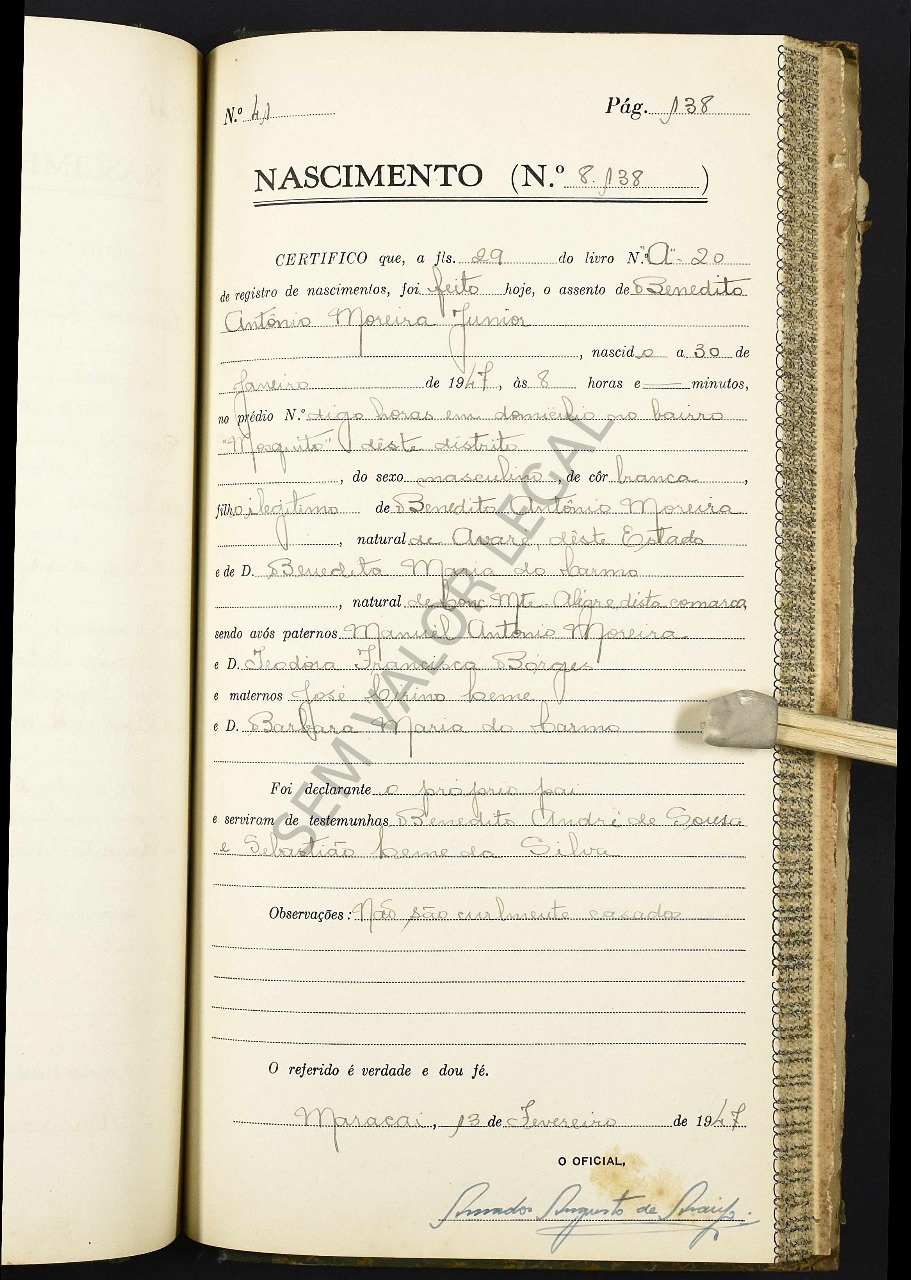 N.º 41 Pág. 138
NASCIMENTO (N.º 8.138)
CERTIFICO que, a fls. 29 do livro N.º "A"- 20
de registro de nascimentos, foi feito hoje, o assento de Benedito
Antônio Moreira Junior
, nascido a 30 de
Janeiro de 1947, às 8 horas e — minutos,
no prédio N.º digo horas em domicílio no bairro
"Mosquito" dêste distrito
, do sexo masculino, de côr branca,
filho ilegitimo de Benedito Antônio Moreira
, natural de Avaré, dêste Estado
e de D. Benedita Maria do Carmo
, natural de Conç. Mte. Alegre desta comarca
sendo avós paternos Manuel Antonio Moreira
e D. Teodora Francisca Borges
e maternos José Cirino Leme
e D. Barbara Maria do Carmo
Foi declarante o próprio pai
e serviram de testemunhas Benedito André de Sousa
e Sebastião Leme da Silva
Observações: Não são civilmente casados
O referido é verdade e dou fé.
Maracaí, 13 de Fevereiro de 1947
O OFICIAL,
Augusto de Araujo
SEM VALOR LEGAL